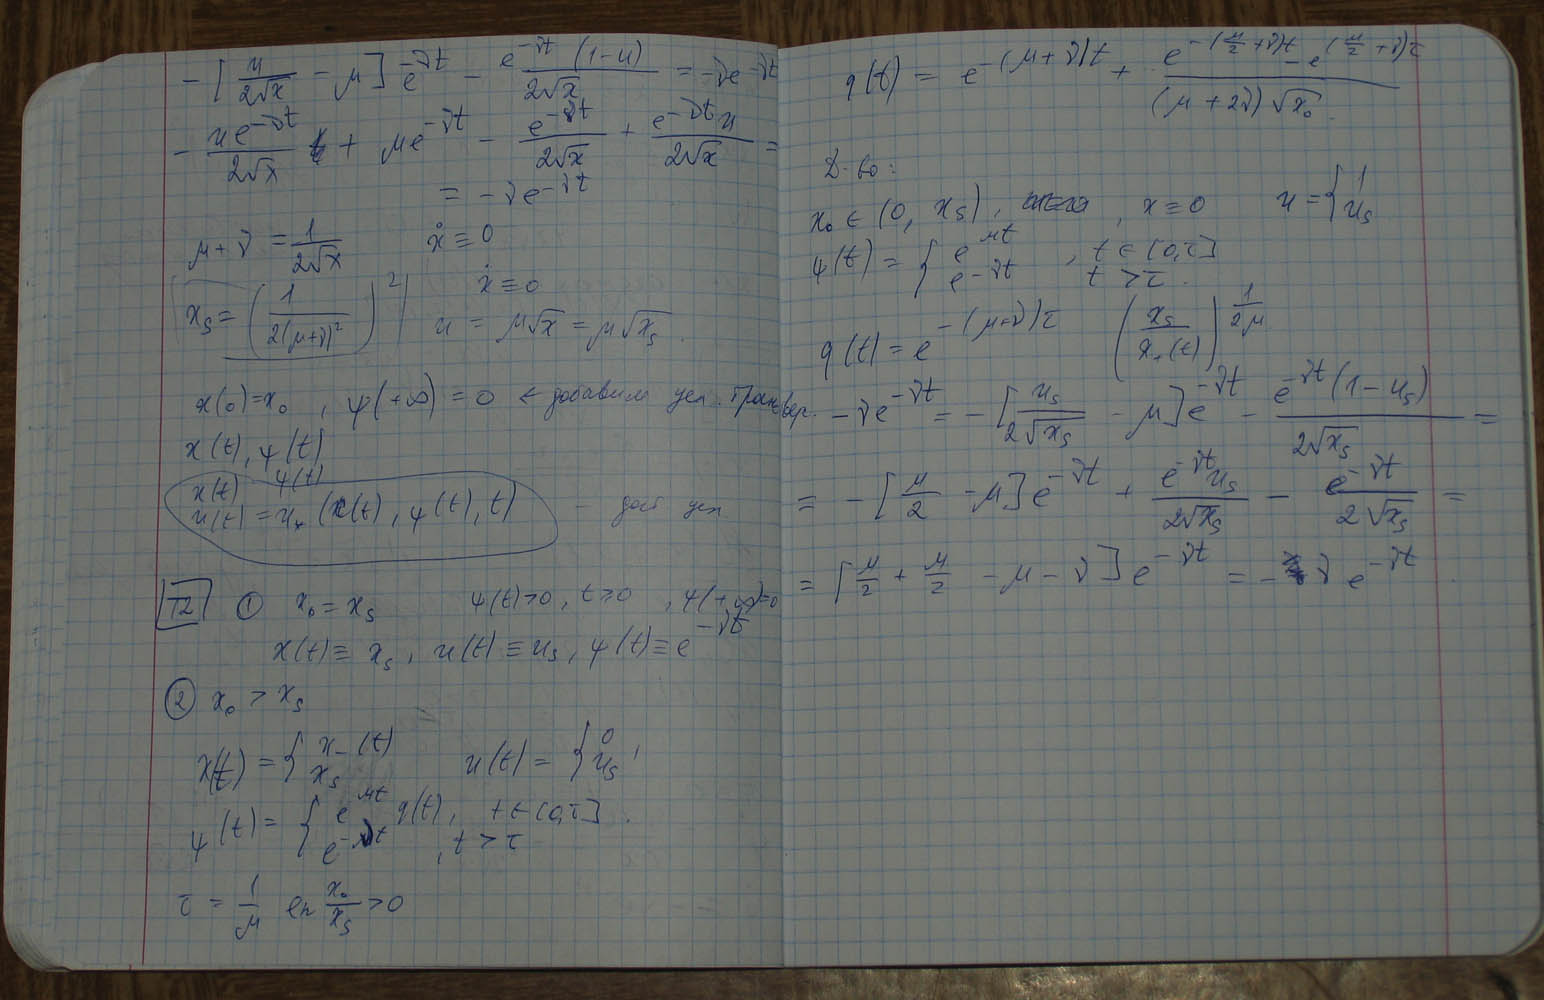 - [u/(2√x) - μ] e^{-νt} - e^{-νt}(1-u)/(2√x) = -νe^{-νt}
- ue^{-νt}/(2√x) + μe^{-νt} - e^{-νt}/(2√x) + e^{-νt}u/(2√x) =
= -νe^{-νt}
μ+ν = 1/(2√x) ẋ ≡ 0
x_s = (1/(2(μ+ν)²))² ẋ ≡ 0
u = μ√x = μ√x_s .
x(0)=x₀ , ψ(+∞) = 0 ← добавим усл. трансвер.
x(t), ψ(t)
x(t) ψ(t)
u(t) = u_*(x(t), ψ(t), t) - дост усл
T2 ① x₀ = x_s ψ(t)>0, t≥0 , ψ(+∞)=0
x(t) ≡ x_s , u(t) ≡ u_s , ψ(t) ≡ e^{-νt}
② x₀ > x_s
x(t) = { x_-(t) ; x_s u(t) = { 0 ; u_s ,
ψ(t) = { e^{μt} q(t), t∈(0,τ] ; e^{-νt} , t > τ .
τ = 1/μ ln x₀/x_s > 0
q(t) = e^{-(μ+ν)t} + (e^{-(μ/2+ν)t} - e^{(μ/2+ν)τ})/((μ+2ν)√x₀)
Д-во:
x₀ ∈ (0, x_s), , x ≡ 0 u = { 1 ; u_s
ψ(t) = { e^{μt} , t ∈ (0,τ] ; e^{-νt} t > τ .
q(t) = e^{-(μ+ν)τ} (x_s/x_*(t))^{1/2μ}
-νe^{-νt} = - [u_s/(2√x_s) - μ] e^{-νt} - e^{-νt}(1-u_s)/(2√x_s) =
= - [μ/2 - μ] e^{-νt} + e^{-νt}u_s/(2√x_s) - e^{-νt}/(2√x_s) =
= [μ/2 + μ/2 - μ - ν] e^{-νt} = -ν e^{-νt} .